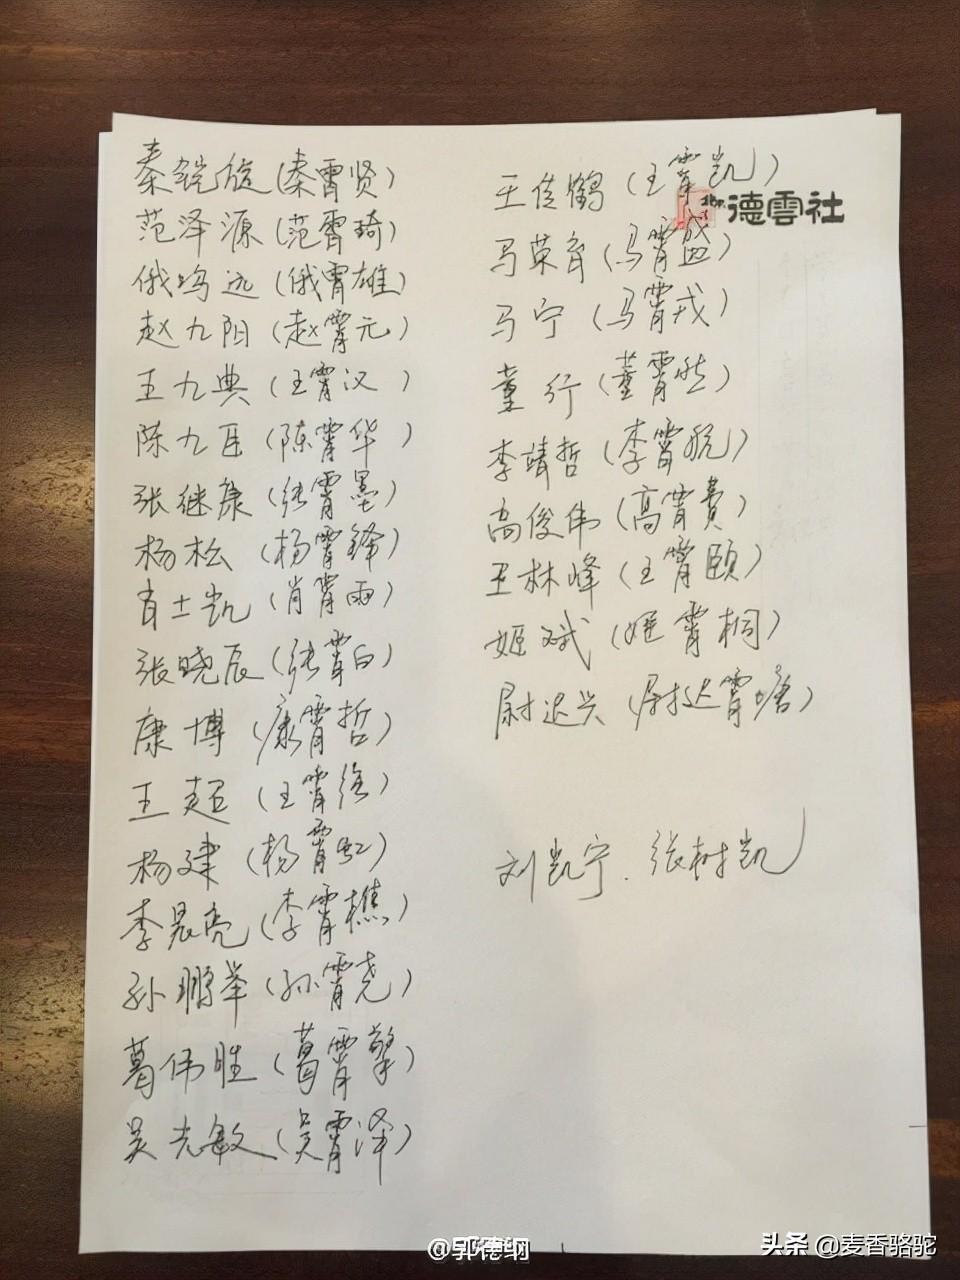 秦铠旋(秦霄贤)
范泽源(范霄琦)
俄鸣远(俄霄雄)
赵九阳(赵霄元)
王九典(王霄汉)
陈九臣(陈霄华)
张继康(张霄墨)
杨松(杨霄锋)
肖士凯(肖霄雨)
张晓辰(张霄白)
康博(康霄哲)
王超(王霄)
杨建(杨霄虹)
李晨亮(李霄樵)
孙鹏举(孙霄尧)
葛伟胜(葛霄擎)
吴光敏(吴霄泽)
王佳鹤(王霄凯)
德雲社
马荣育(马霄盛)
马宁(马霄戎)
董行(董霄然)
李靖哲(李霄航)
高俊伟(高霄贲)
王林峰(王霄颐)
姬斌(姬霄桐)
尉迟兴(尉迟霄)
刘凯宁、张树凯
@郭德纲
头条 @麦香骆驼